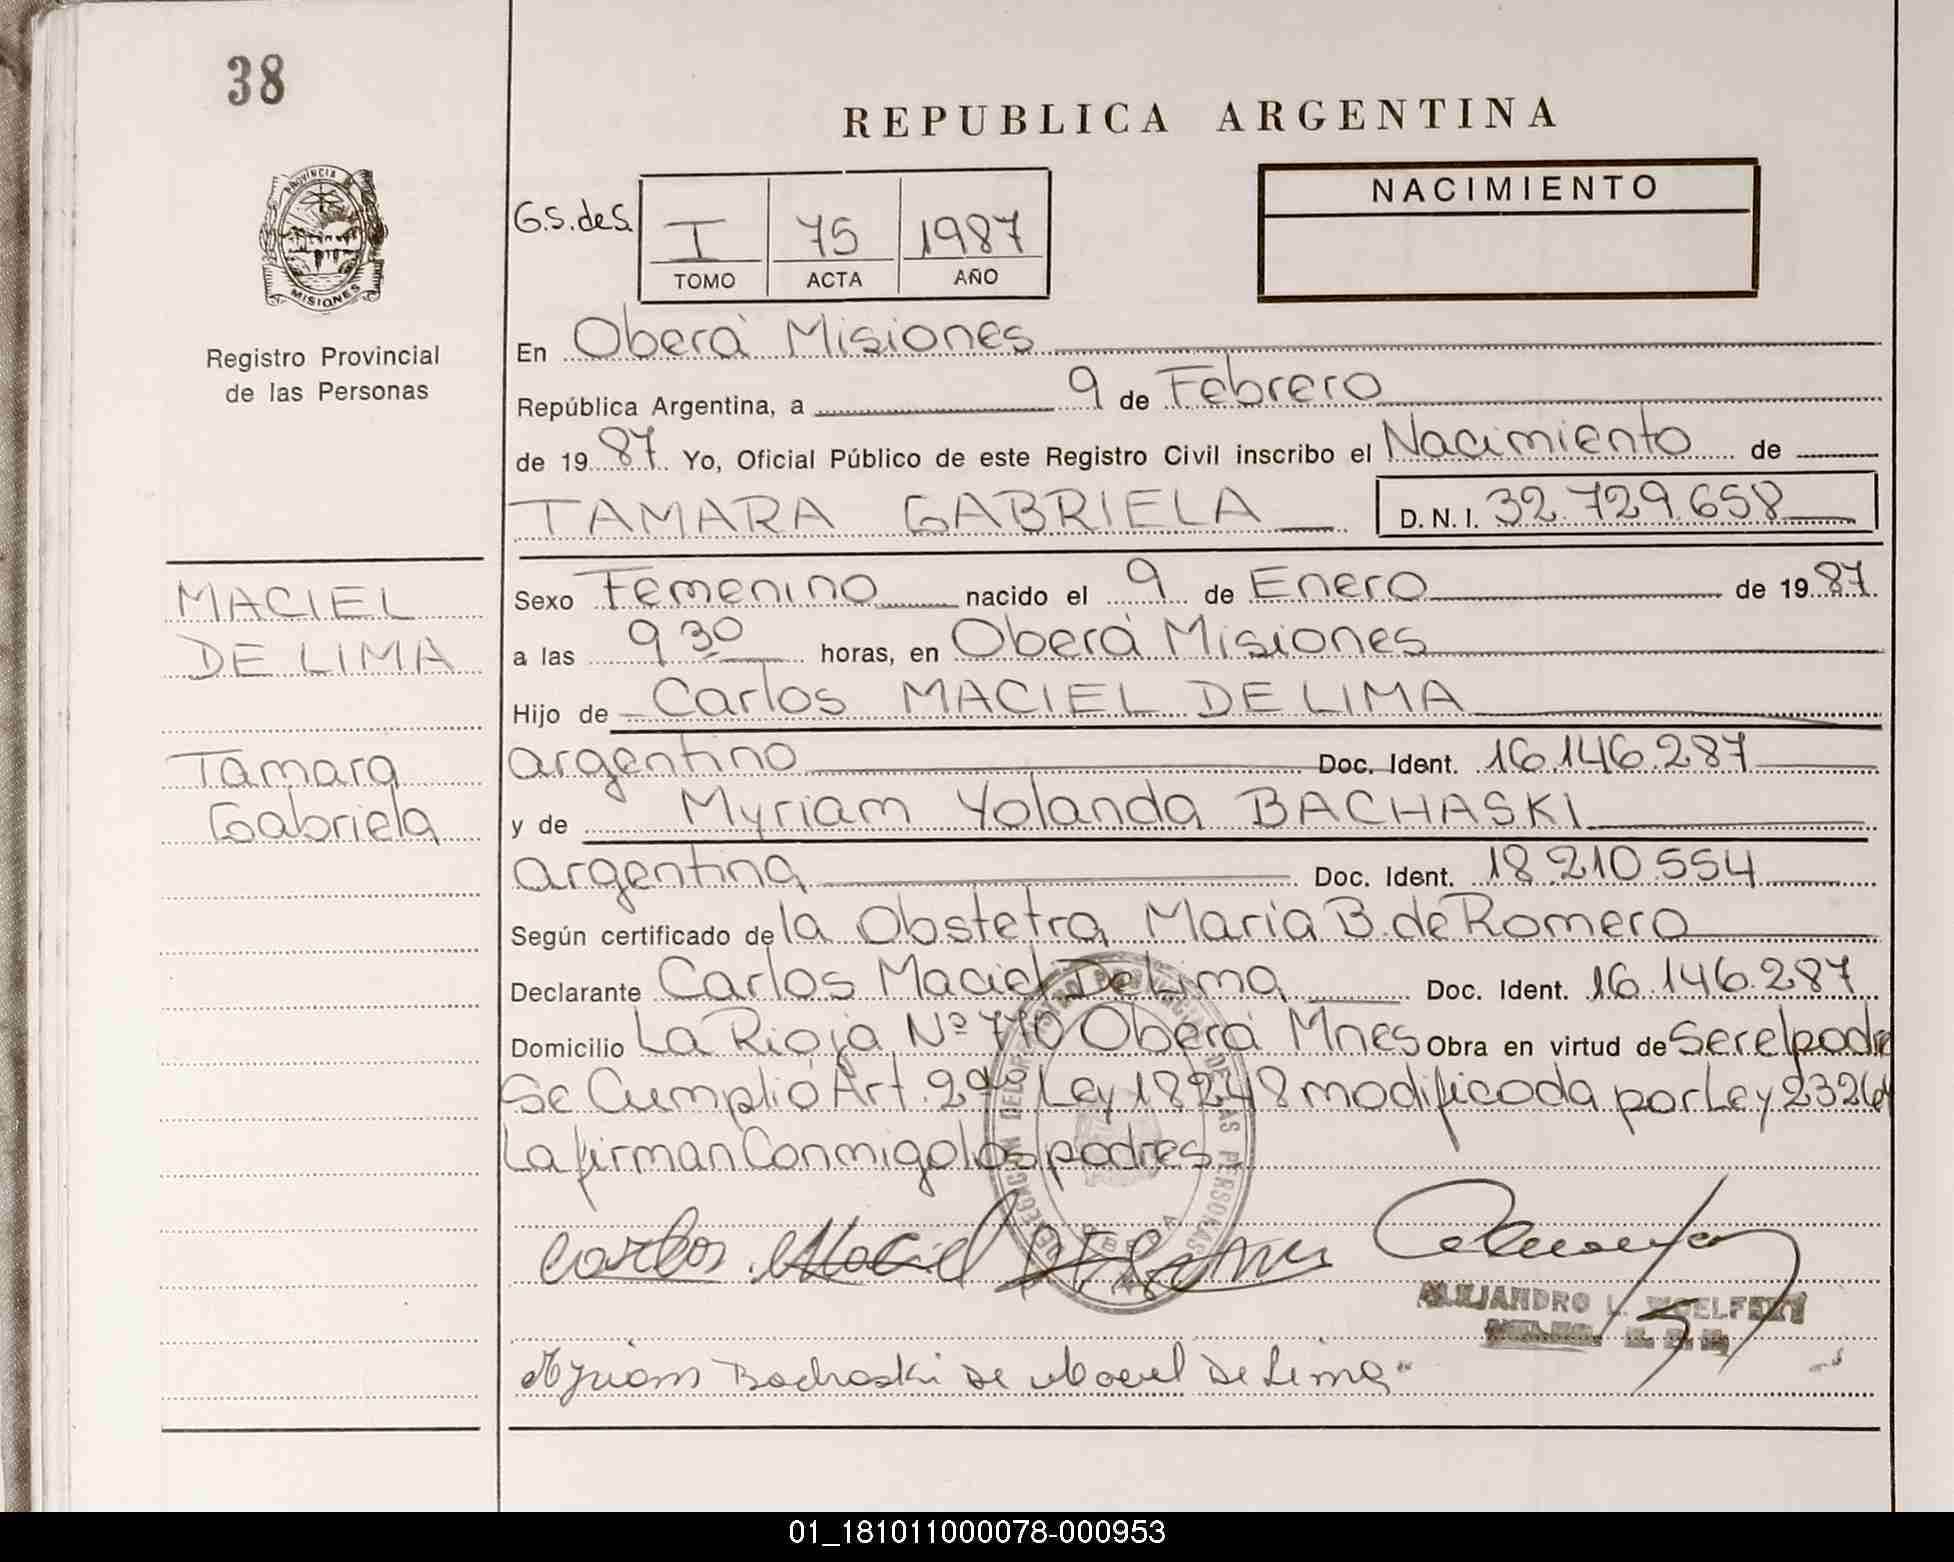 38
REPUBLICA ARGENTINA
PROVINCIA
MISIONES
Registro Provincial
de las Personas
G.S. de S. I 75 1987
TOMO ACTA AÑO
NACIMIENTO
En Oberá Misiones
República Argentina, a 9 de Febrero
de 1987. Yo, Oficial Público de este Registro Civil inscribo el Nacimiento de
TAMARA GABRIELA D. N. I. 32.729.658
MACIEL
DE LIMA
Tamara
Gabriela
Sexo Femenino nacido el 9 de Enero de 1987.
a las 9 30 horas, en Oberá Misiones
Hijo de Carlos MACIEL DE LIMA
argentino Doc. Ident. 16.146.287
y de Myriam Yolanda BACHASKI
argentina Doc. Ident. 18.210.554
Según certificado de la Obstetra María B. de Romero
Declarante Carlos Maciel De Lima Doc. Ident. 16.146.287
Domicilio La Rioja Nº 770 Oberá Mnes Obra en virtud de ser el padre
Se Cumplió Art. 2do Ley 18248 modificada por Ley 23264
La firman Conmigo los padres
Carlos Maciel De Lima
ALEJANDRO L.
Myriam Bachaski de Maciel De Lima
01_181011000078-000953